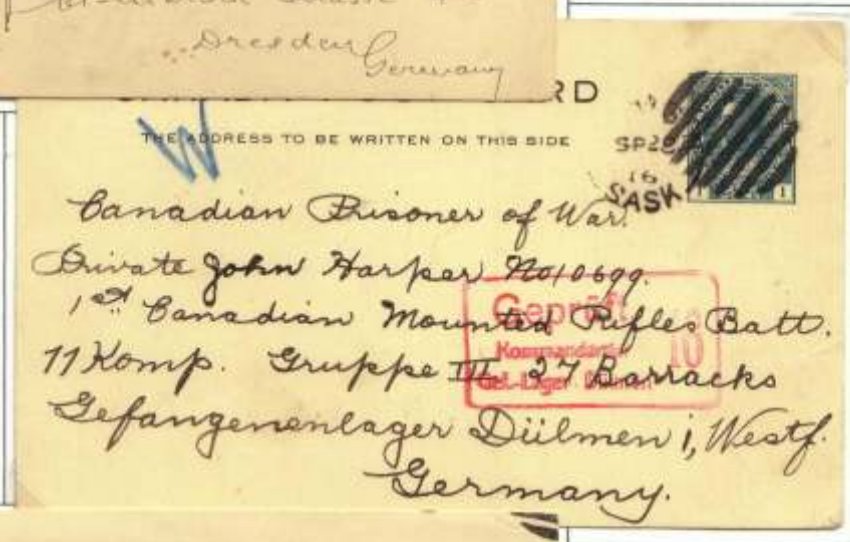 Dresden
Germany
RD
THE ADDRESS TO BE WRITTEN ON THIS SIDE
SP 28
16
SASK
1
W
Canadian Prisoner of War.
Private John Harper No 10699.
1st Canadian Mounted Rifles Batt.
11 Komp. Gruppe III 27 Barracks
Gefangenenlager Dülmen i, Westf.
Germany.
Geprüft
10
Kommandantur
Gef.-Lager Dülmen